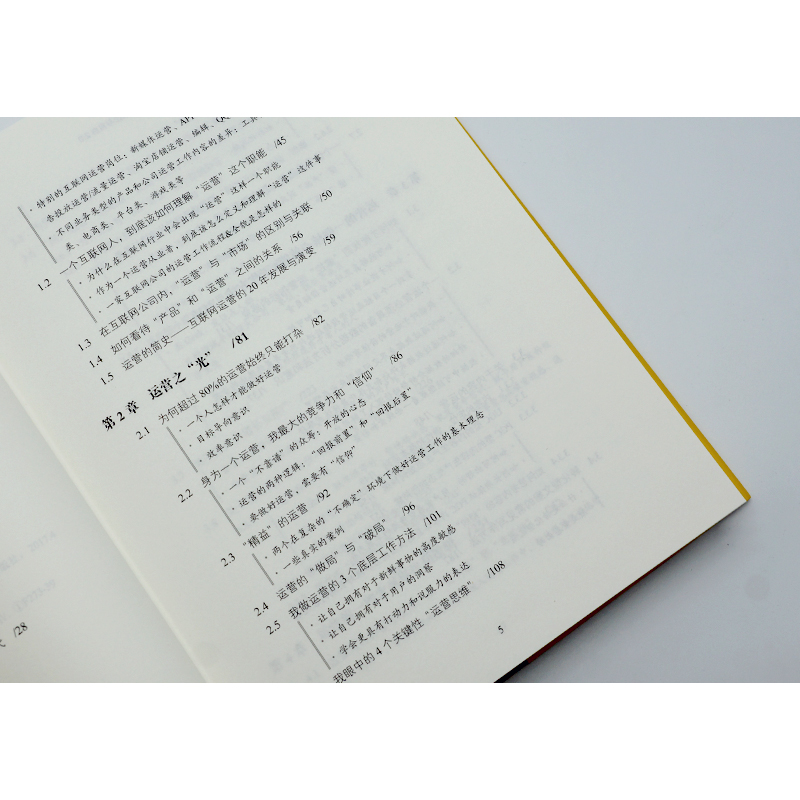 · 特别的互联网运营岗位：新媒体运营、AP
告投放运营/流量运营、淘宝店铺运营、编辑、QQ
· 不同业务类型的产品和公司运营工作内容的差异：工具
类、电商类、平台类、游戏类等
1.2 一个互联网人，到底该如何理解“运营”这个职能 /45
· 为什么在互联网行业中会出现“运营”这样一个职能
· 作为一个运营从业者，到底该怎么定义和理解“运营”这件事
· 一家互联网公司的运营工作流程&全貌是怎样的
1.3 在互联网公司内，“运营”与“市场”的区别与关联 /50
1.4 如何看待“产品”和“运营”之间的关系 /56
1.5 运营的简史——互联网运营的20年发展与演变 /59
第2章 运营之“光” /81
2.1 为何超过80%的运营始终只能打杂 /82
· 一个人怎样才能做好运营
· 目标导向意识
· 效率意识
2.2 身为一个运营，我最大的竞争力和“信仰” /86
· 一个“不靠谱”的众筹：开放的心态
· 运营的两种逻辑：“回报前置”和“回报后置”
· 要做好运营，需要有“信仰”
2.3 “精益”的运营 /92
· 两个在复杂的“不确定”环境下做好运营工作的基本理念
· 一些真实的案例
2.4 运营的“做局”与“破局” /96
2.5 我做运营的3个底层工作方法 /101
· 让自己拥有对于新鲜事物的高度敏感
· 让自己拥有对于用户的洞察
· 学会更具有打动力和说服力的表达
我眼中的4个关键性“运营思维” /108
5
/28